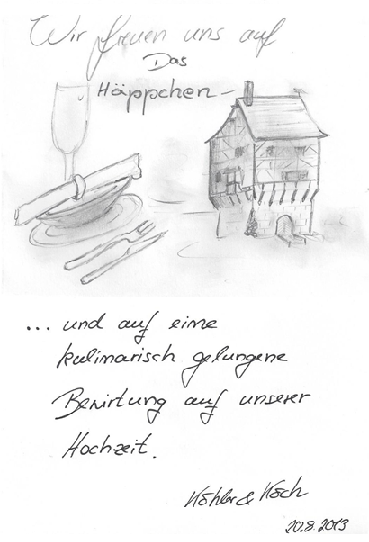 Wir freuen uns auf
Das
Häppchen-
... und auf eine
kulinarisch gelungene
Bewirtung auf unserer
Hochzeit.
Köhler & Koch
20.8.2013